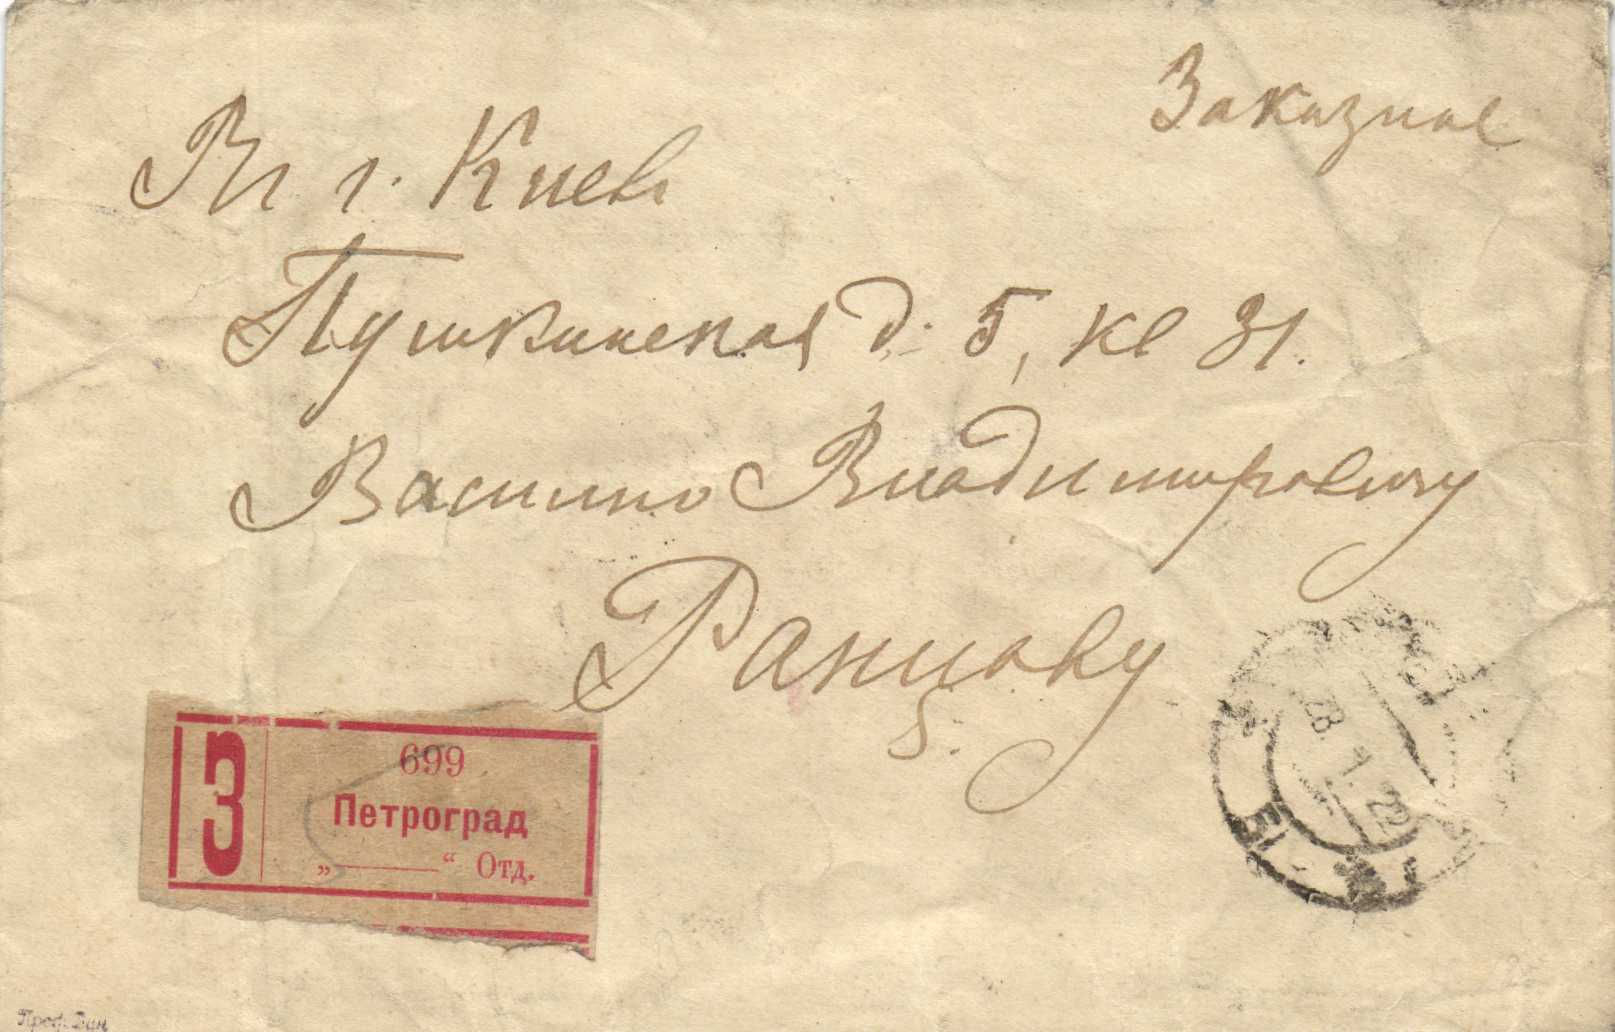 Заказное
Въ г. Киев
Пушкинская д. 5, кв 31.
Василию Владимировичу
Ранцову
З
699
Петроград
„ “ Отд.
28.1.22
Проф. Дин